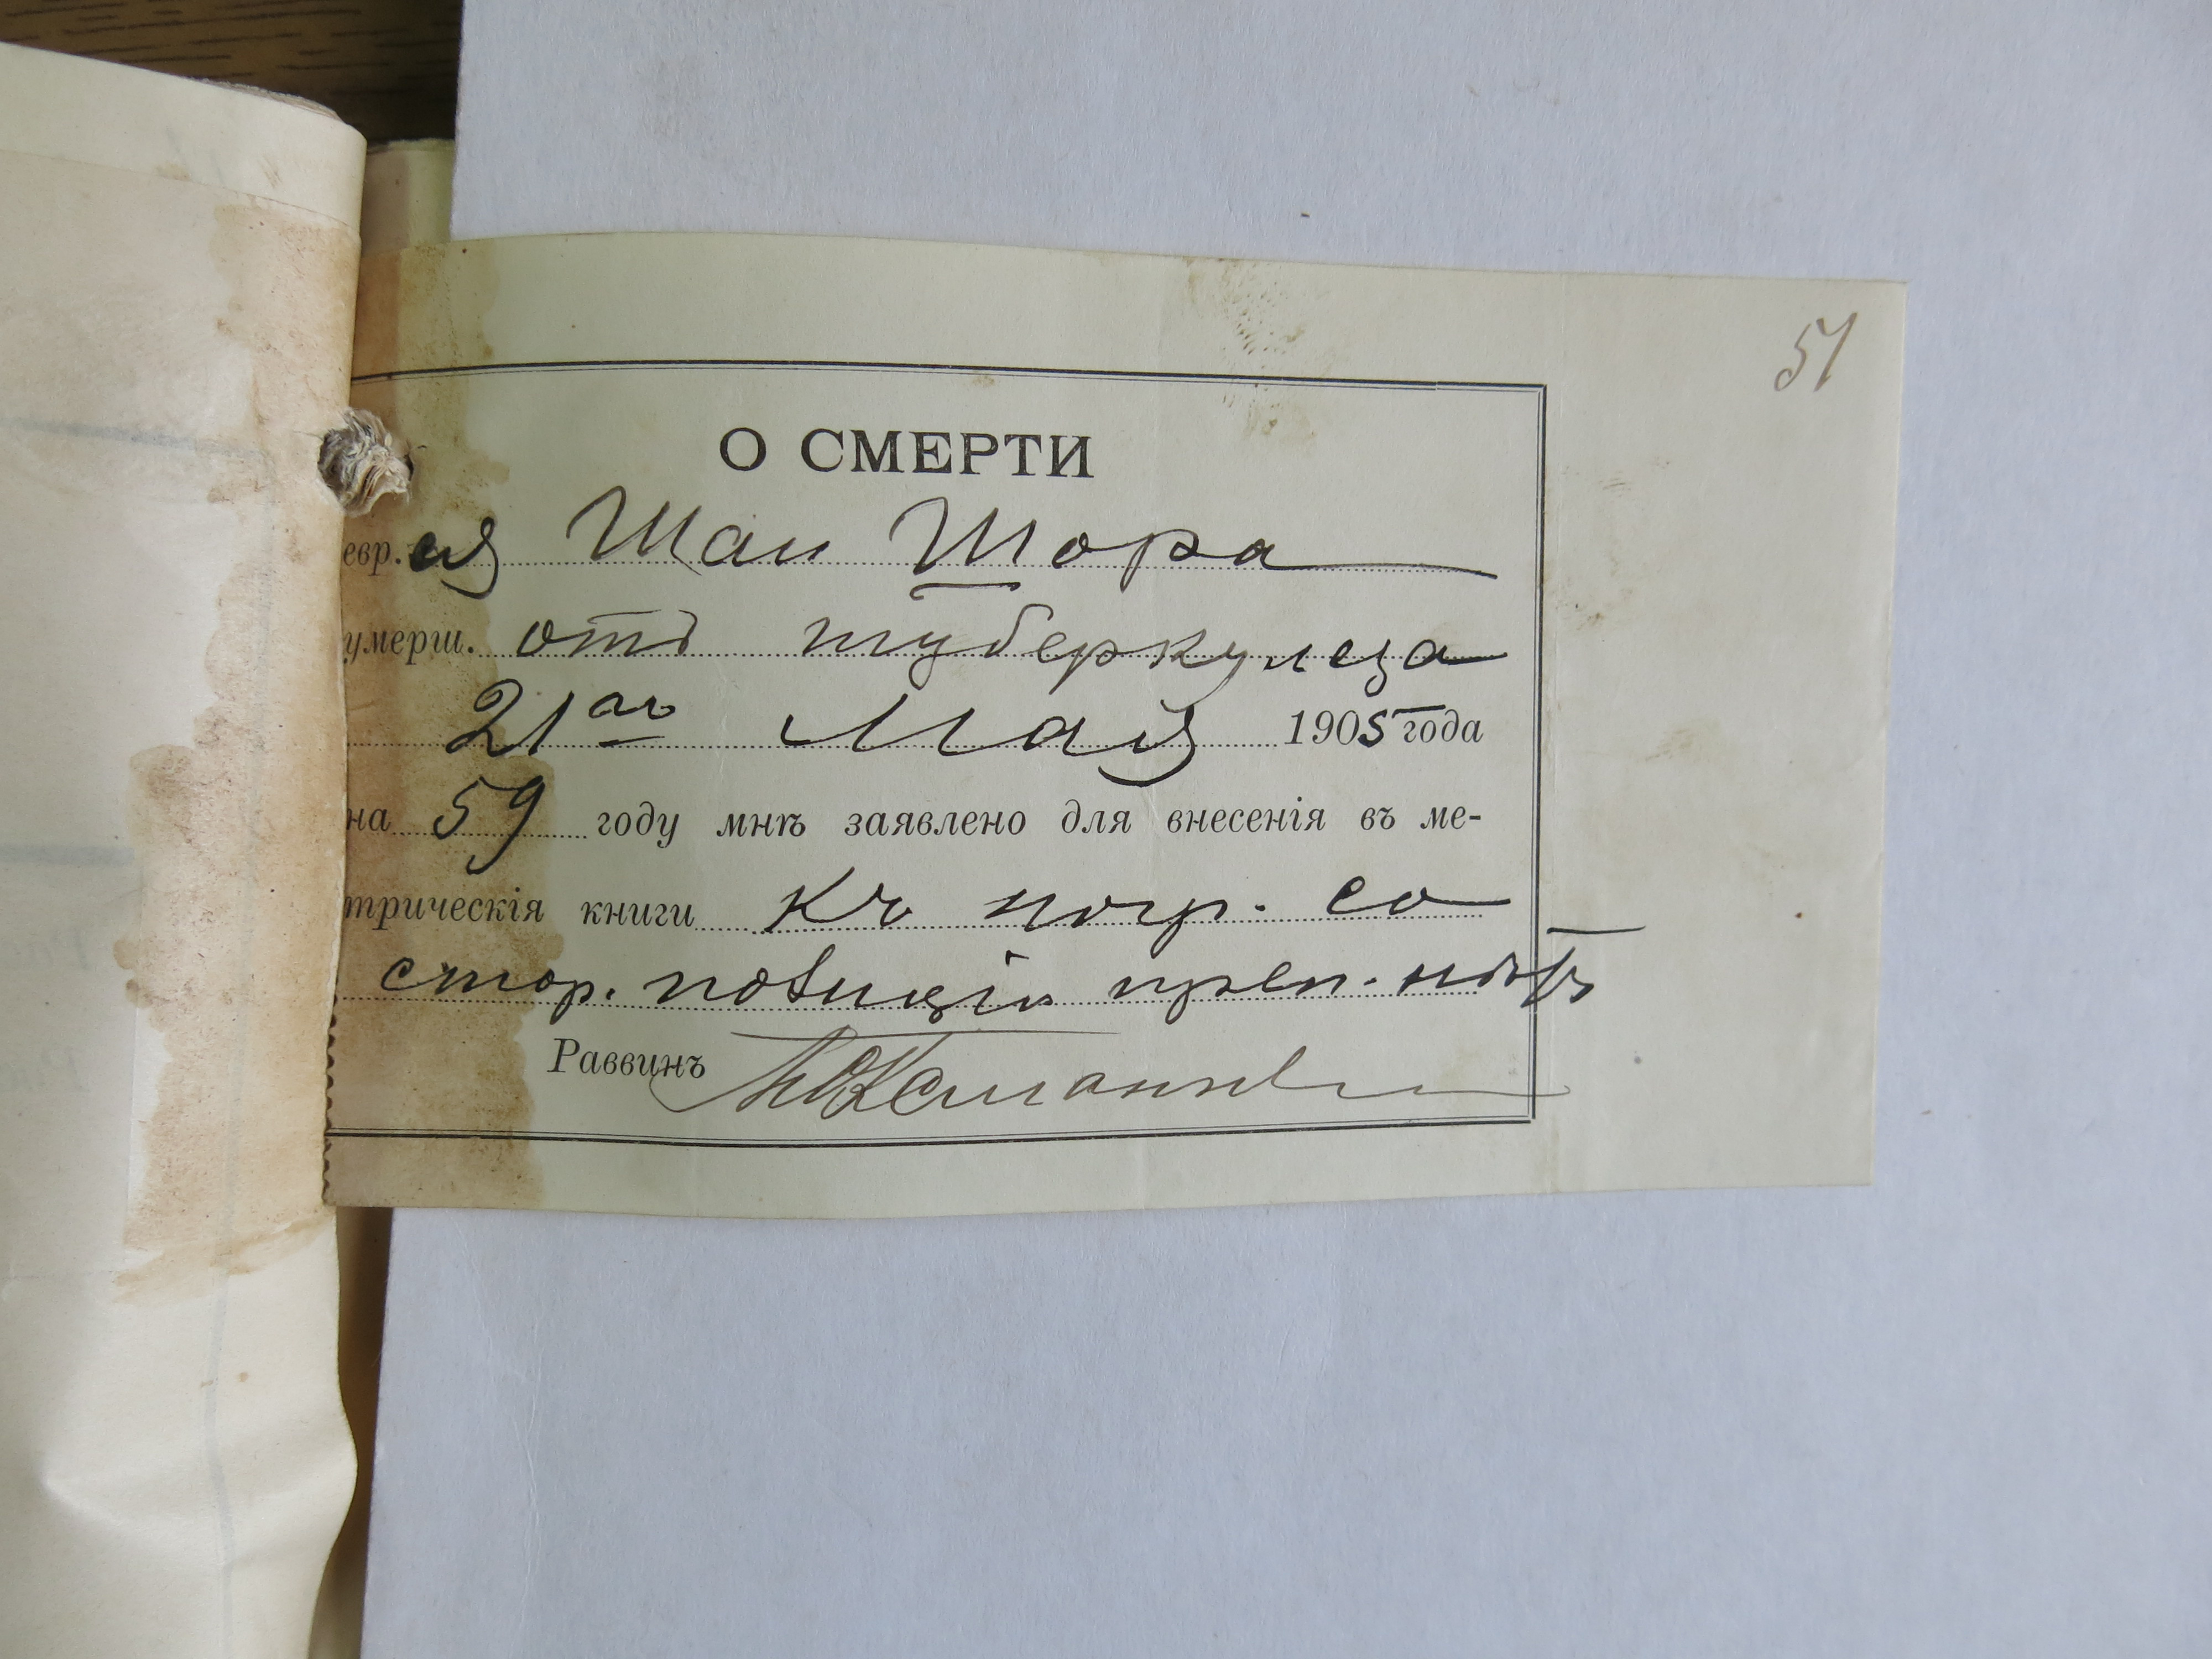 51
О СМЕРТИ
евр.ея Шаи Шора
умерш. отъ туберкулеза
21го Мая 1905 года
на 59 году мнѣ заявлено для внесенія въ ме-
трическія книги Къ погр. со
стор. полиціи преп. нѣтъ
Раввинъ